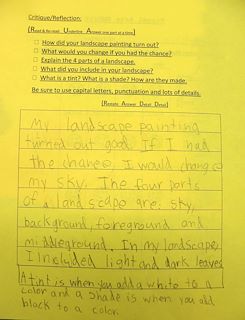 Critique/Reflection:
[Read & Re-read Underline Answer one part at a time]
☐ How did your landscape painting turn out?
☐ What would you change if you had the chance?
☐ Explain the 4 parts of a landscape.
☐ What did you include in your landscape?
☐ What is a tint? What is a shade? How are they made.
Be sure to use capital letters, punctuation and lots of details.
[Restate Answer Detail Detail]
My landscape painting
turned out good. If I had
the chance, I would change
my sky. The four parts
of a landscape are: sky,
background, foreground and
middleground. In my landscape,
I included light and dark leaves
A tint is when you add a white to a
color and a shade is when you add
black to a color.